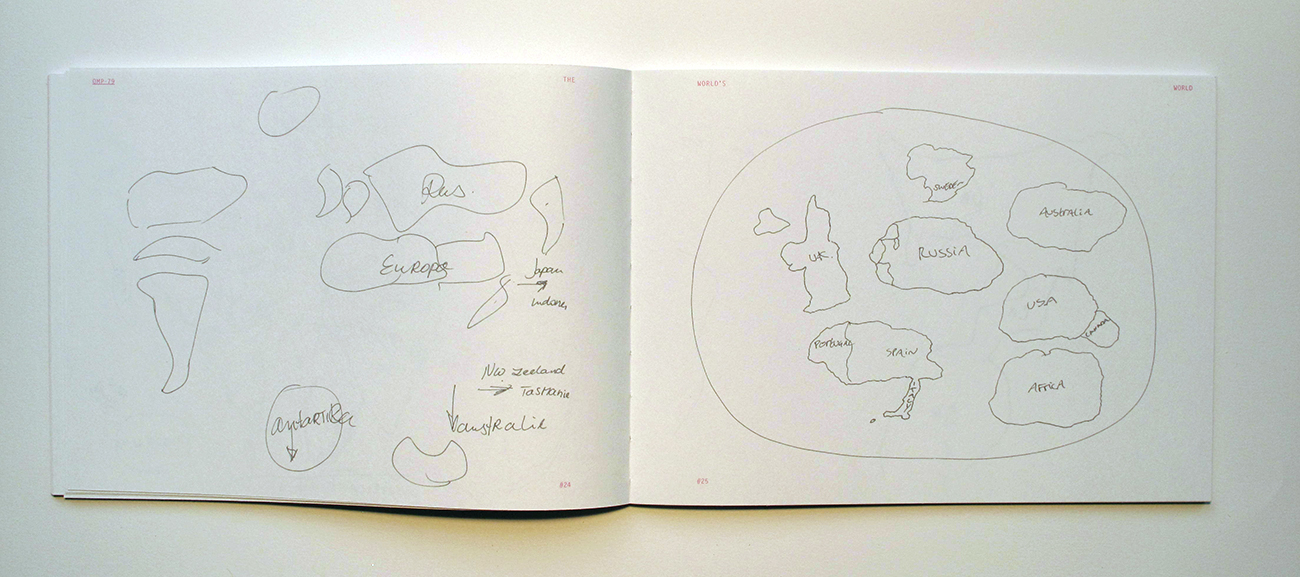 OMP-79
THE
Rus.
EUROPE
Japan
Indones
New Zeeland
Tasmanie
australie
antartika
024
WORLD'S
WORLD
SWEDEN
AUSTRALIA
UK.
RUSSIA
USA
CANADA
PORTUGAL
SPAIN
ITALY
AFRICA
025